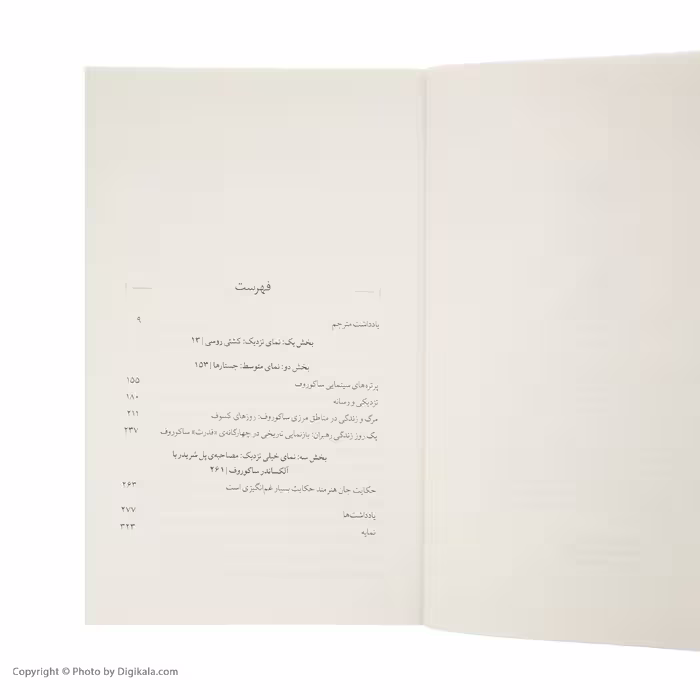 فهرست
یادداشت مترجم ۹
بخش یک: نمای نزدیک: کشتی روسی | ۱۳
بخش دو: نمای متوسط: جستارها | ۱۵۳
پرتره‌های سینمایی ساکوروف ۱۵۵
نزدیکی و رسانه ۱۸۰
مرگ و زندگی در مناطق مرزی ساکوروف: روزهای کسوف ۲۱۱
یک روز زندگی رهبران: بازنمایی تاریخی در چهارگانه‌ی «قدرت» ساکوروف ۲۳۷
بخش سه: نمای خیلی نزدیک: مصاحبه‌ی پل شریدر با
الکساندر ساکوروف | ۲۶۱
حکایت جان هنرمند حکایت بسیار غم‌انگیزی است ۲۶۳
یادداشت‌ها ۲۷۷
نمایه ۳۲۳
Copyright © Photo by Digikala.com